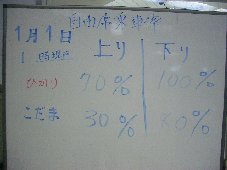 自由席乗車率
1月1日
1 時現在 上り 下り
ひかり 70% 100%
こだま 30% 80%